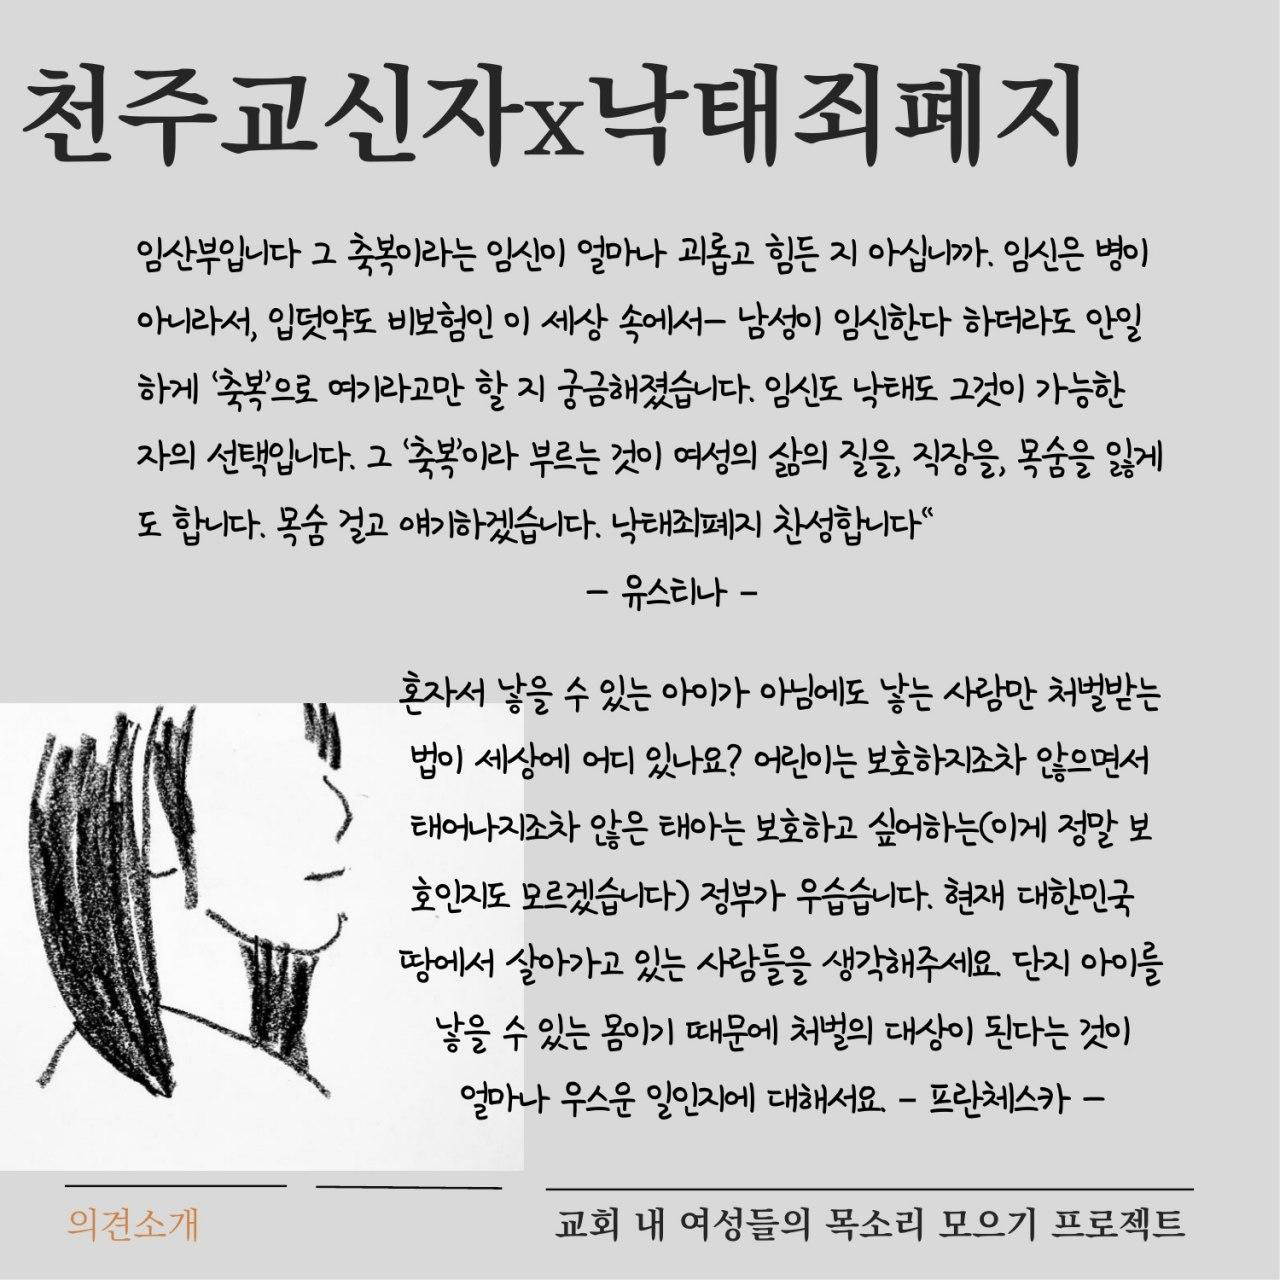 천주교신자x낙태죄폐지
임산부입니다 그 축복이라는 임신이 얼마나 괴롭고 힘든 지 아십니까. 임신은 병이
아니라서, 입덧약도 비보험인 이 세상 속에서- 남성이 임신한다 하더라도 안일
하게 '축복'으로 여기라고만 할 지 궁금해졌습니다. 임신도 낙태도 그것이 가능한
자의 선택입니다. 그 '축복'이라 부르는 것이 여성의 삶의 질을, 직장을, 목숨을 잃게
도 합니다. 목숨 걸고 얘기하겠습니다. 낙태죄폐지 찬성합니다“
- 유스티나 -
혼자서 낳을 수 있는 아이가 아님에도 낳는 사람만 처벌받는
법이 세상에 어디 있나요? 어린이는 보호하지조차 않으면서
태어나지조차 않은 태아는 보호하고 싶어하는(이게 정말 보
호인지도 모르겠습니다) 정부가 우습습니다. 현재 대한민국
땅에서 살아가고 있는 사람들을 생각해주세요. 단지 아이를
낳을 수 있는 몸이기 때문에 처벌의 대상이 된다는 것이
얼마나 우스운 일인지에 대해서요. - 프란체스카 -
의견소개
교회 내 여성들의 목소리 모으기 프로젝트